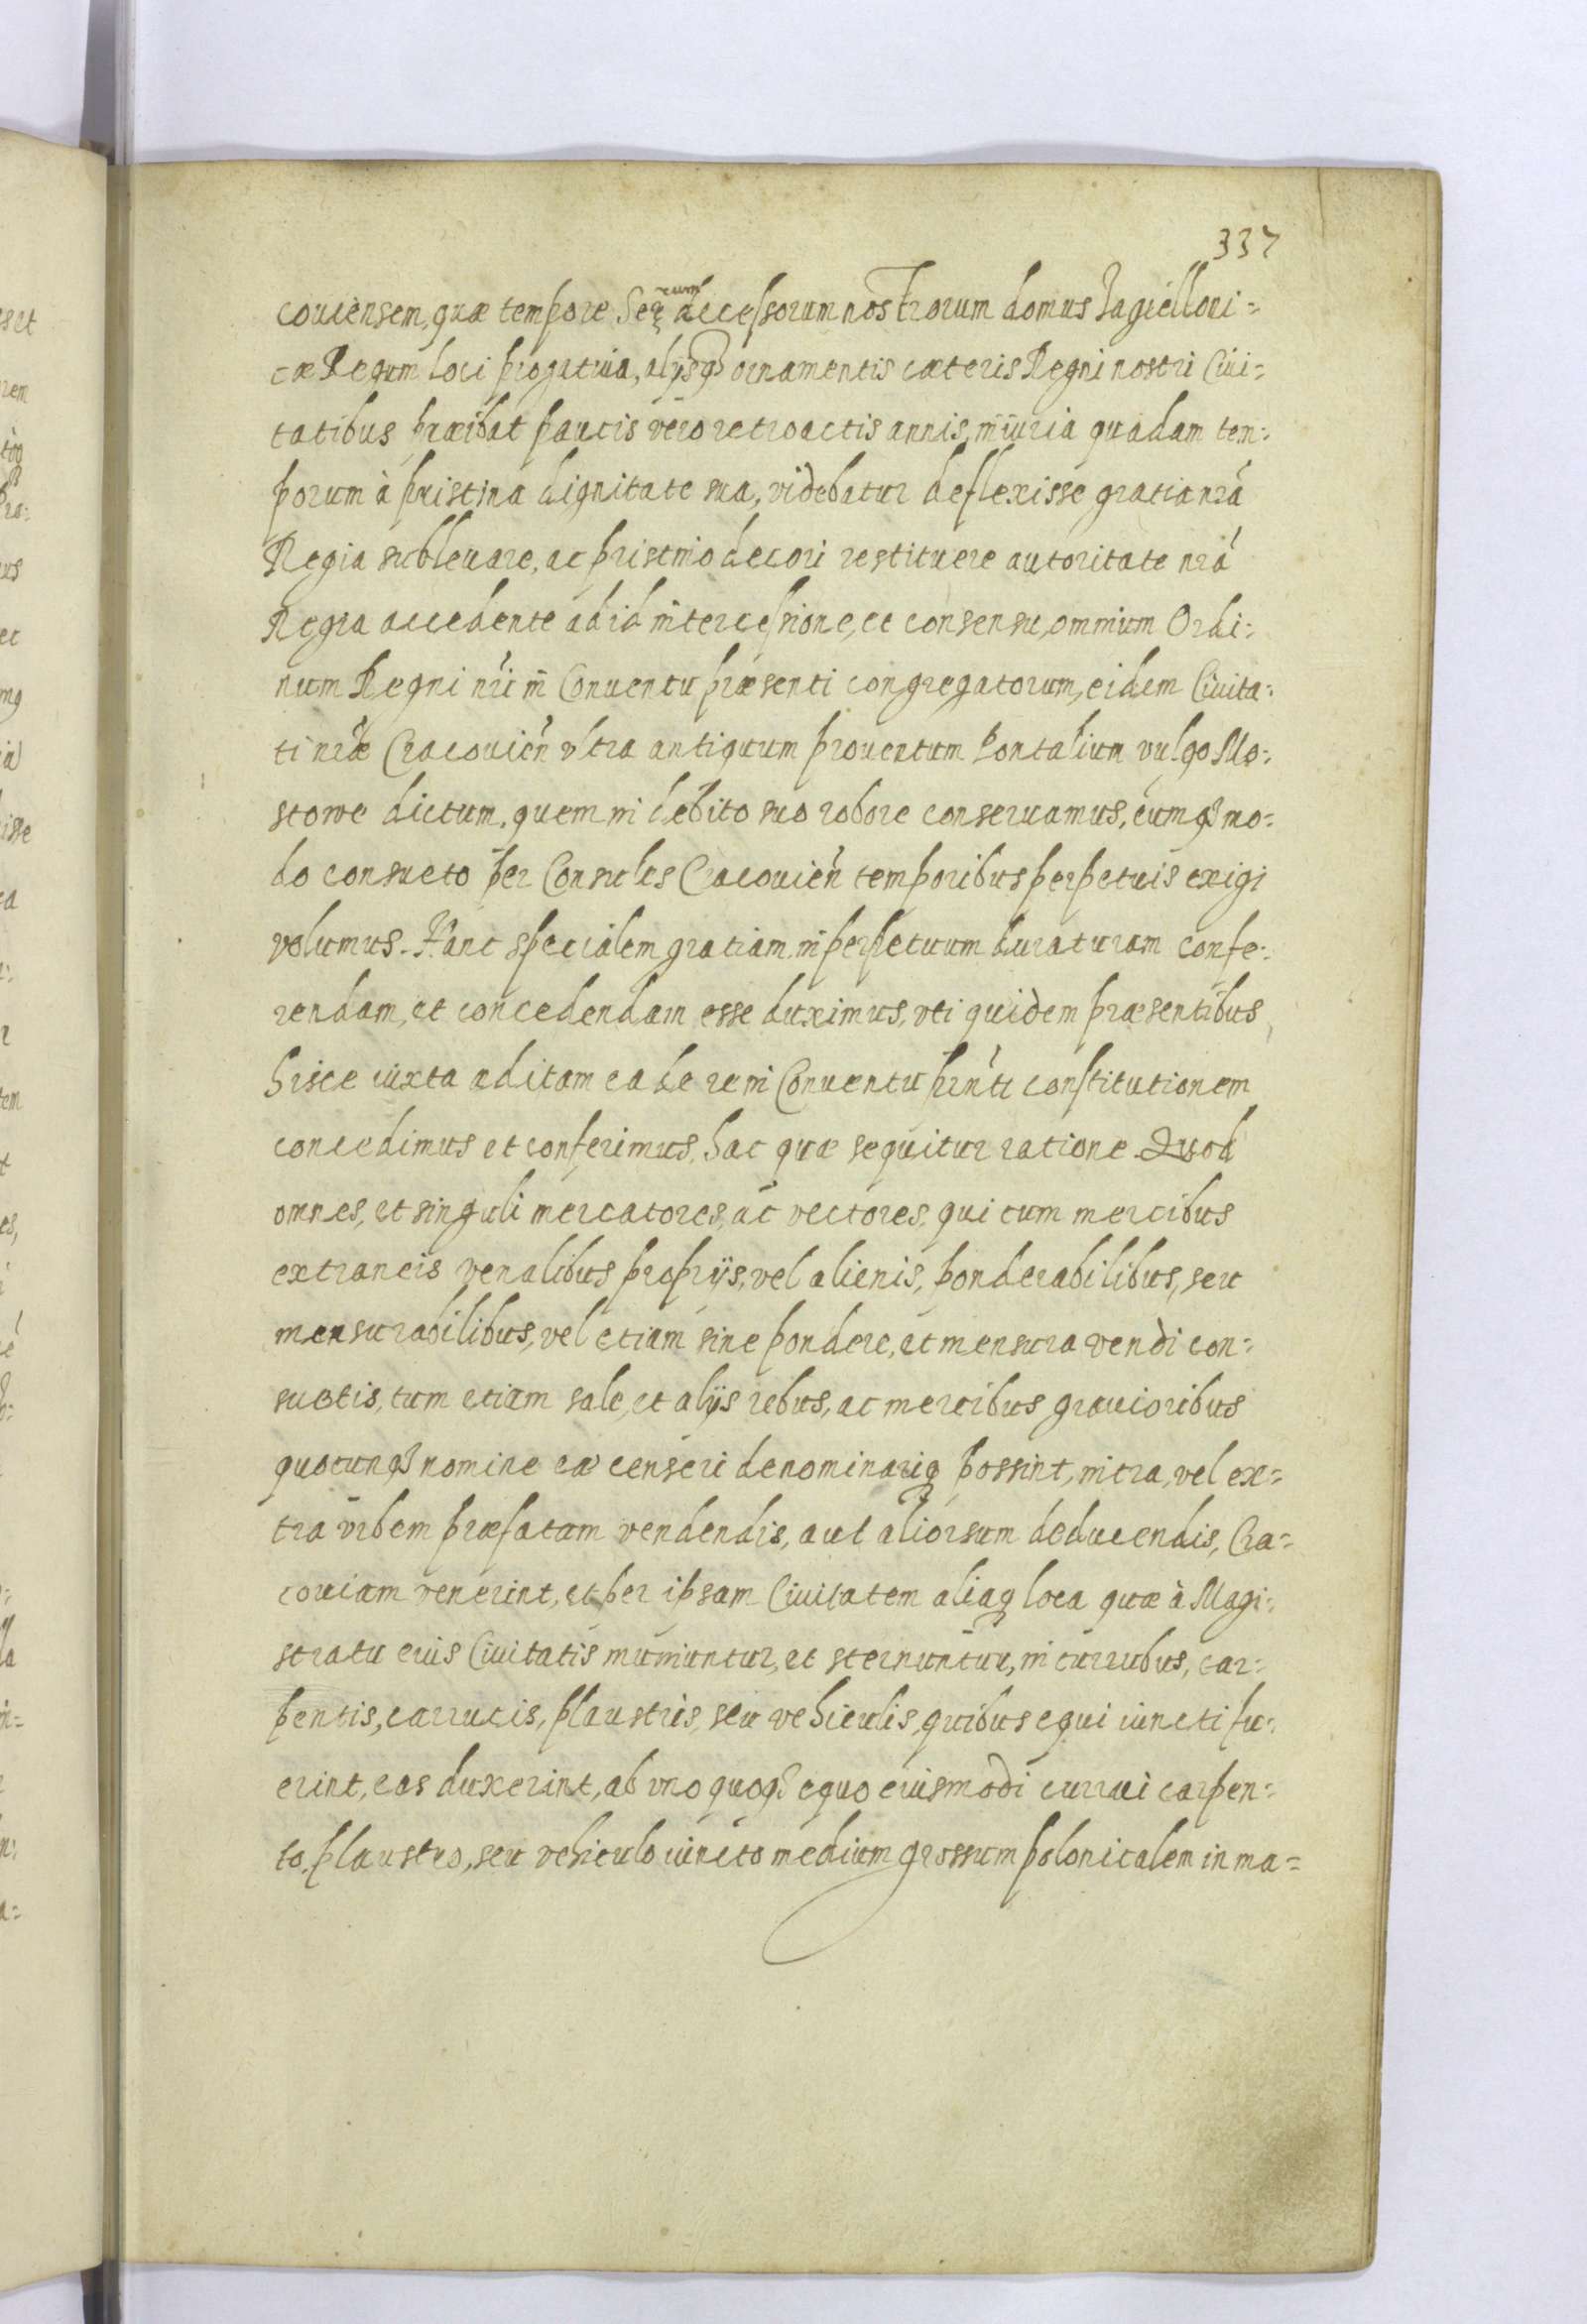 337
couiensem, quæ tempore Ser̃rum decessorum nostrorum domus Jagielloni=
cæ Regum loci progatiua, alijsq́ꝫ ornamentis cæteris Regni nostri Ciui=
tatibus præibat paucis vero retroactis annis, iniuria quadam tem=
porum à pristina dignitate sua, videbatur deflexisse gratia nrã
Regia subleuare, ac pristino decori restituere autoritate nrã
Regia accedente ad id intercessione, et consensu, omnium Ordi=
num Regni nri in Conuentu præsenti congregatorum, eidem Ciuita=
ti nræ Cracouien̄ vltra antiquum prouentum Pontalium vulgo Mo=
stowe dictum, quem in debito suo robore conseruamus, eumqꝫ mo=
do consueto per Consules Cracouien̄ temporibus perpetuis exigi
volumus. Hanc specialem gratiam in perpetuum duraturam confe=
rendam, et concedendam esse duximus, vti quidem præsentibus
hisce iuxta æditam ea de re in Conuentu prn̄ti constitutionem
concedimus et conferimus, hac quæ sequitur ratione. Quod
omnes, et singuli mercatores, ac vectores, qui cum mercibus
extraneis venalibus proprijs, vel alienis, ponderabilibus, seu
mensurabilibus, vel etiam sine pondere, et mensura vendi con=
suetis, tum etiam sale, et alijs rebus, ac mercibus grauioribus
quocunqꝫ nomine eæ censeri denominariqꝫ possint, intra, vel ex=
tra vrbem præfatam vendendis, aut aliorsum deducendis, Cra=
couiam venerint, et per ipsam Ciuitatem aliaqꝫ loca quæ à Magi=
stratu eius Ciuitatis muniuntur, et sternuntur, in curribus, car=
pentis, carrucis, plaustris, seu vehiculis, quibus equi iuncti fu=
erint, eas duxerint, ab vno quoqꝫ equo eiusmodi currui carpen=
to, plaustro, seu vehiculo iuncto medium grossum polonicalem in ma=